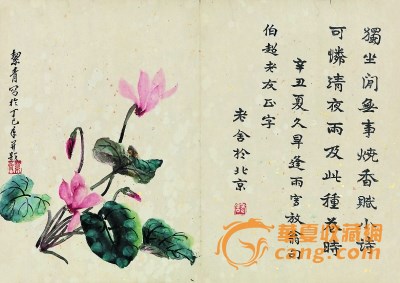 獨坐閒無事燒香賦小詩
可憐清夜雨及此種花時
辛丑夏久旱逢雨写放翁句
伯超老友正字
老舍於北京
絜青写於丁巳年并題
華夏收藏網
cang.com